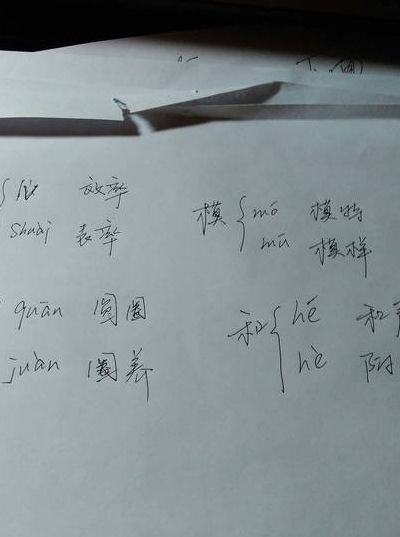 lǜ 效率
shuài 表率
模 mó 模特
mú 模样
quān 圆圈
juàn 圈养
和 hé 和
hè 附